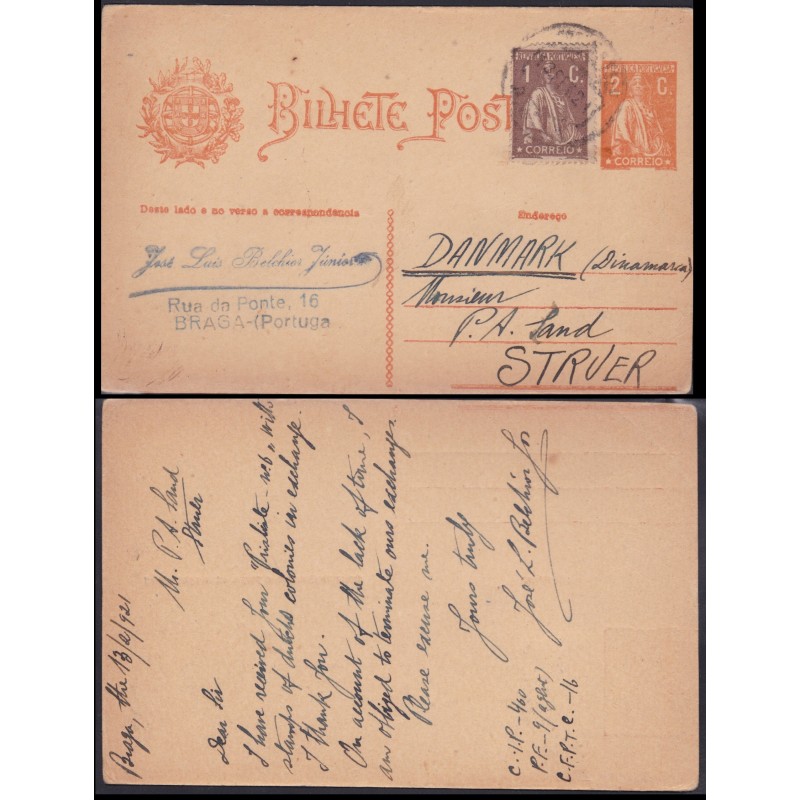 BILHETE POST
REPUBLICA PORTUGUESA
1 C.
CORREIO
REPUBLICA PORTUGUESA
2 C.
CORREIO
Deste lado e no verso a correspondencia
Endereço
José Luis Belchior Júnior
Rua da Ponte, 16
BRAGA-(Portuga
DANMARK (Dinamarca)
Monsieur
P. A. Sand
STRUER
Braga, the 13/2/921
Mr. P. A. Sand
Struer
Dear Sir
I have received four nº6, with
stamps of dutchs colonies in exchange.
I thank you.
On account of the lack of time, I
am obliged to terminate ours exchanges.
Please excuse me.
Yours truly
José L. Belchior Jor
C.I.P.-460
P.F.-9
C.F.P.T.C.-16